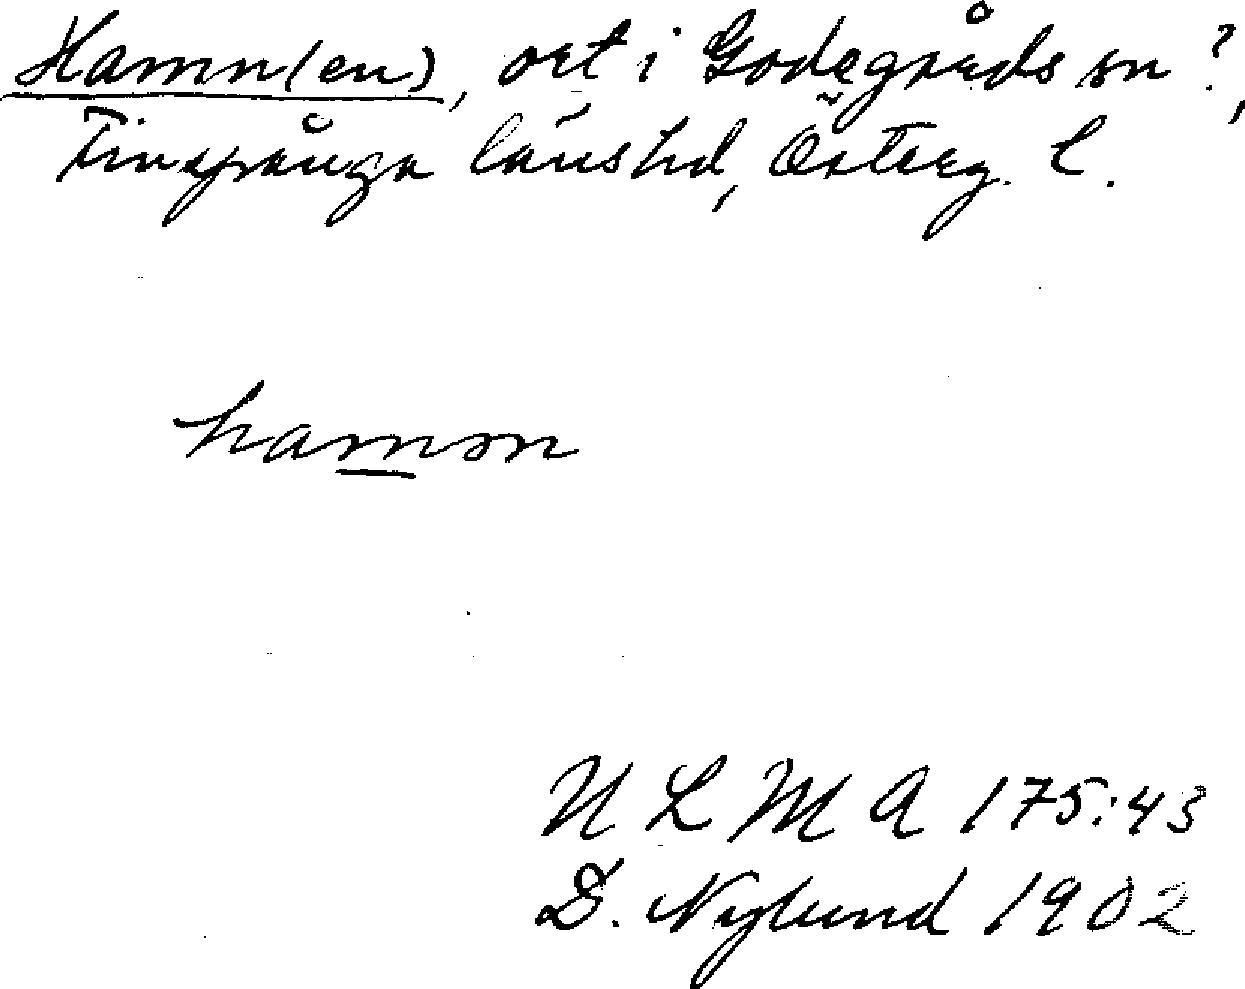 Hamn(en), ort i Godegårds sn?,
Finspånga läns hd, Österg. l.
hamən
ULMA 175:43
D. Nylund 1902